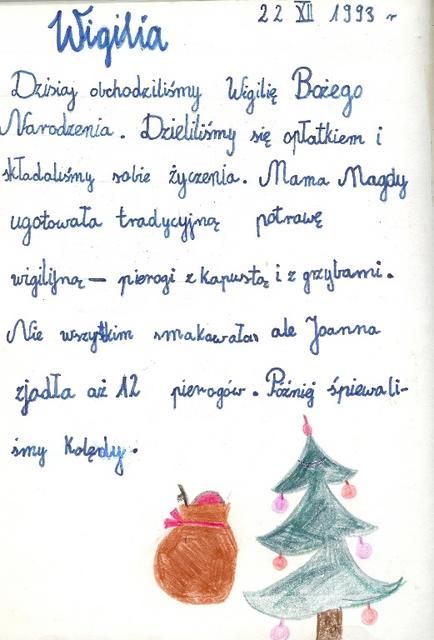 22 XII 1993 r
Wigilia
Dzisiaj obchodziliśmy Wigilię Bożego
Narodzenia. Dzieliliśmy się opłatkiem i
składaliśmy sobie życzenia. Mama Magdy
ugotowała tradycyjną potrawę
wigilijną — pierogi z kapustą i z grzybami.
Nie wszystkim smakowała, ale Joanna
zjadła aż 12 pierogów. Później śpiewali-
śmy kolędy.